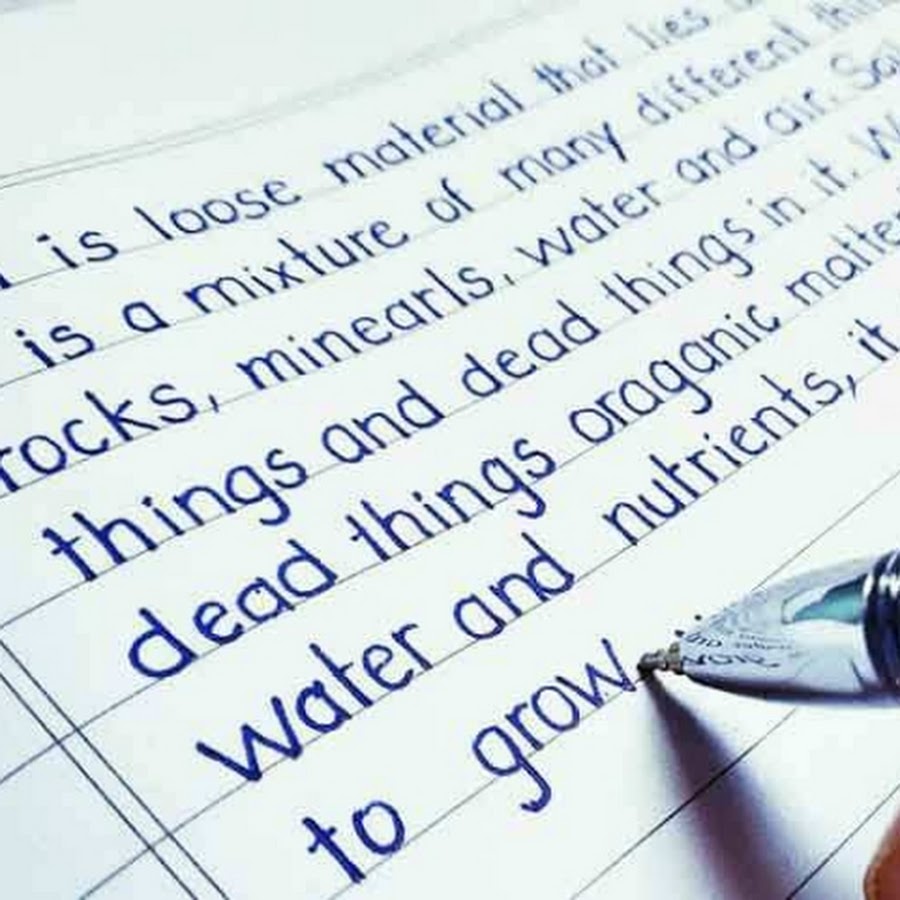 is loose material that lies
is a mixture of many different
rocks, minearls, water and air.
things and dead things in it.
dead things oraganic matter
water and nutrients, it
to grow